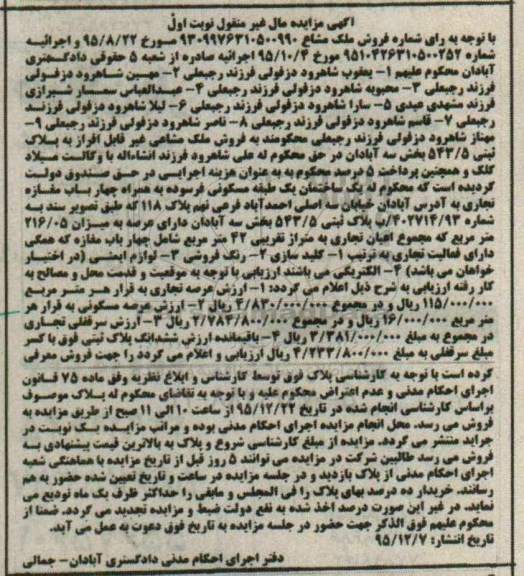 آگهی مزایده مال غیر منقول نوبت اول
با توجه به رای شماره فروش ملک مشاع ۹۳۰۹۹۷۶۳۱۰۵۰۰۹۹۰ مـورخ ۹۵/۸/۲۲ و اجرائیـه
شماره ۹۵۱۰۴۲۶۳۱۰۵۰۰۲۵۲ مورخ ۹۵/۱۰/۴ اجرائیه صادره از شعبه ۵ حقوقی دادگستری
آبادان محکوم علیهم ۱- یعقوب شاهرود دزفولی فرزند رجبعلی ۲- مهسین شاهرود دزفـولی
فرزند رجبعلی ۳- محبوبه شاهرود دزفولی فرزند رجبعلی ۴- عبدالعباس سمسار شیرازی
فرزند مشهدی عیدی ۵- سارا شاهرود دزفولی فرزند رجبعلی ۶- لیلا شاهرود دزفولی فرزنـد
رجبعلی ۷- قاسم شاهرود دزفولی فرزند رجبعلی ۸- ناصر شاهرود دزفولی فرزند رجبعلی ۹-
مهناز شاهرود دزفولی فرزند رجبعلی محکومند به فروش ملک مشاعی غیر قابل افراز به پـلاک
ثبتی ۵۴۳/۵ بخش سه آبادان در حق محکوم له علی شاهرود فرزند انشاءاله با وکالـت میـلاد
گلک و همچنین پرداخت ۵ درصد محکوم به به عنوان هزینه اجرایـی در حـق صنـدوق دولـت
گردیده است که محکوم له یک ساختمان یک طبقه مسکونی فرسوده به همراه چهار بـاب مغـازه
تجاری به آدرس آبادان خیابان سه اصلی احمدآباد فرعی نهم پلاک ۱۱۸ که طبق تصویر سند بـه
شماره ۴۰۲۷۱۴/۹۳/ب پلاک ثبتی ۵۴۳/۵ بخش سه آبادان دارای عرصه به میـزان ۲۱۶/۰۵
متر مربع که مجموع اعیان تجاری به متراژ تقریبی ۴۲ متر مربع شامل چهار باب مغازه که همگی
دارای فعالیت تجاری به ترتیب ۱- کلید سازی ۲- رنگ فروشی ۳- لوازم ایمنـی (در اختیـار
خواهان می باشد) ۴- الکتریکی می باشند ارزیابی با توجه به موقعیت و قدمت محل و مصالح به
کار رفته ارزیابی به شرح ذیل اعلام می گردد: ۱- ارزش عرصه تجاری به قرار هـر متـر مربـع
۱۱۵/۰۰۰/۰۰۰ ریال و در مجموع ۴/۸۳۰/۰۰۰/۰۰۰ ریال ۲- ارزش عرصه مسکونی به قرار هر
متر مربع ۱۶/۰۰۰/۰۰۰ ریال و در مجموع ۲/۷۸۴/۸۰۰/۰۰۰ ریال ۳- ارزش سرقفلی تجـاری
در مجموع به مبلغ ۳/۳۸۱/۰۰۰/۰۰۰ ریال ۴- باقیمانده ارزش ششدانگ پلاک ثبتی فوق با کسر
مبلغ سرقفلی به مبلغ ۴/۲۳۳/۸۰۰/۰۰۰ ریال ارزیابی و اعلام می گردد را جهت فروش معرفی
کرده است با توجه به کارشناسی پلاک فوق توسط کارشناس و ابلاغ نظریه وفق ماده ۷۵ قـانون
اجرای احکام مدنی و عدم اعتراض محکوم علیه و با توجه به تقاضای محکوم له پـلاک موصـوف
براساس کارشناسی انجام شده در تاریخ ۹۵/۱۲/۲۲ از ساعت ۱۰ الی ۱۱ صبح از طریق مزایده به
فروش می رسد. محل انجام مزایده اجرای احکام مدنی بوده و مراتب مزایـده یـک نوبـت در
جراید منتشر می گردد. مزایده از مبلغ کارشناسی شروع و پلاک به بالاترین قیمت پیشنهادی بـه
فروش می رسد طالبین شرکت در مزایده می توانند ۵ روز قبل از تاریخ مزایده با هماهنگی شعبه
اجرای احکام مدنی از پلاک بازدید و در جلسه مزایده در ساعت و تاریخ تعیین شده حضور به هم
رسانند. خریدار ده درصد بهای پلاک را فی المجلس و مابقی را حداکثر ظرف یک ماه تودیع می
نماید. در غیر این صورت درصد اخذ شده به نفع دولت ضبط و مزایده تجدید می گردد. ضمنا از
محکوم علیهم فوق الذکر جهت حضور در جلسه مزایده به تاریخ فوق دعوت به عمل می آید.
تاریخ انتشار: ۹۵/۱۲/۷
دفتر اجرای احکام مدنی دادگستری آبادان- جمالی